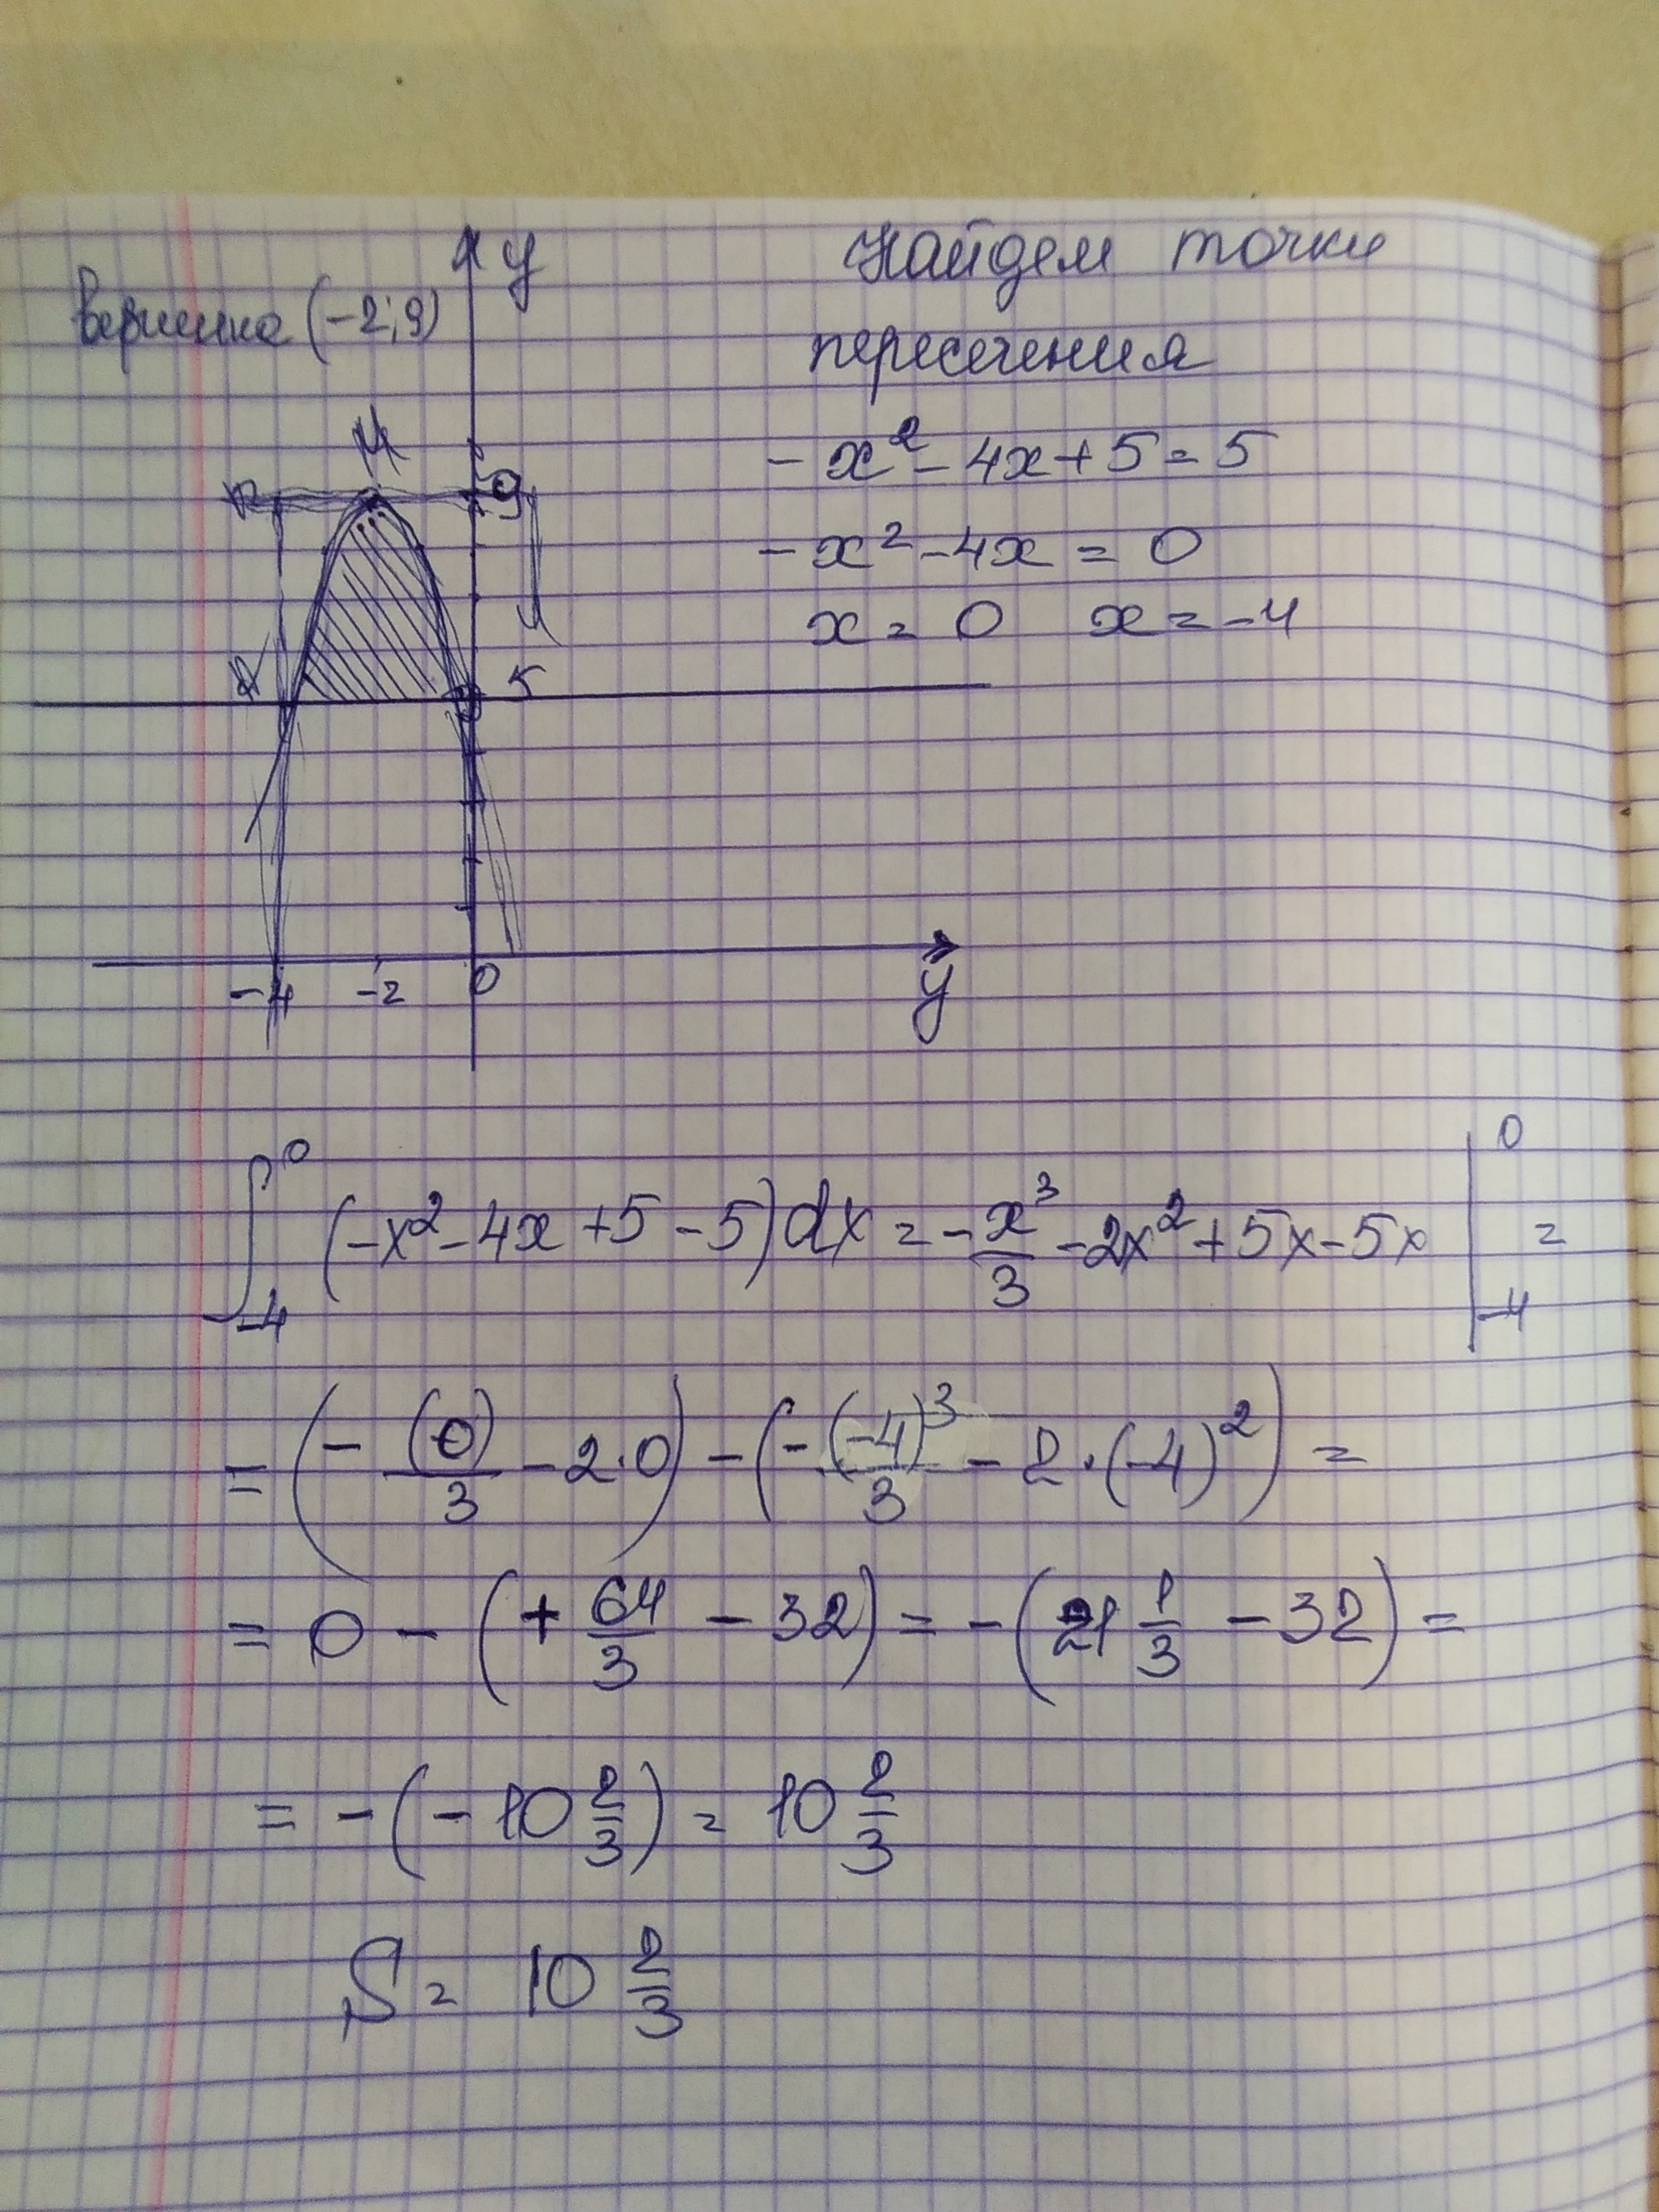 y
вершина (-2; 9)
М
9
5
-4 -2 0
y
Найдем точки
пересечения
-x² - 4x + 5 = 5
-x² - 4x = 0
x = 0 x = -4
∫₋₄⁰ (-x² - 4x + 5 - 5) dx = -x³/3 - 2x² + 5x - 5x |₋₄⁰ =
= (-(0)/3 - 2·0) - (-(-4)³/3 - 2·(-4)²) =
= 0 - (+64/3 - 32) = -(21 1/3 - 32) =
= -(-10 2/3) = 10 2/3
S = 10 2/3